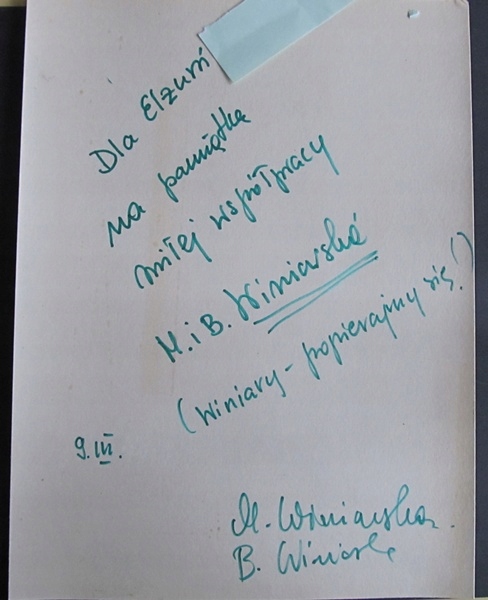 Dla Elzuni
na pamiątkę
miłej współpracy
M. i B. Winiarska
(Winiary - popierajmy się!)
9.III.
M. Winiarska.
B. Winiarska